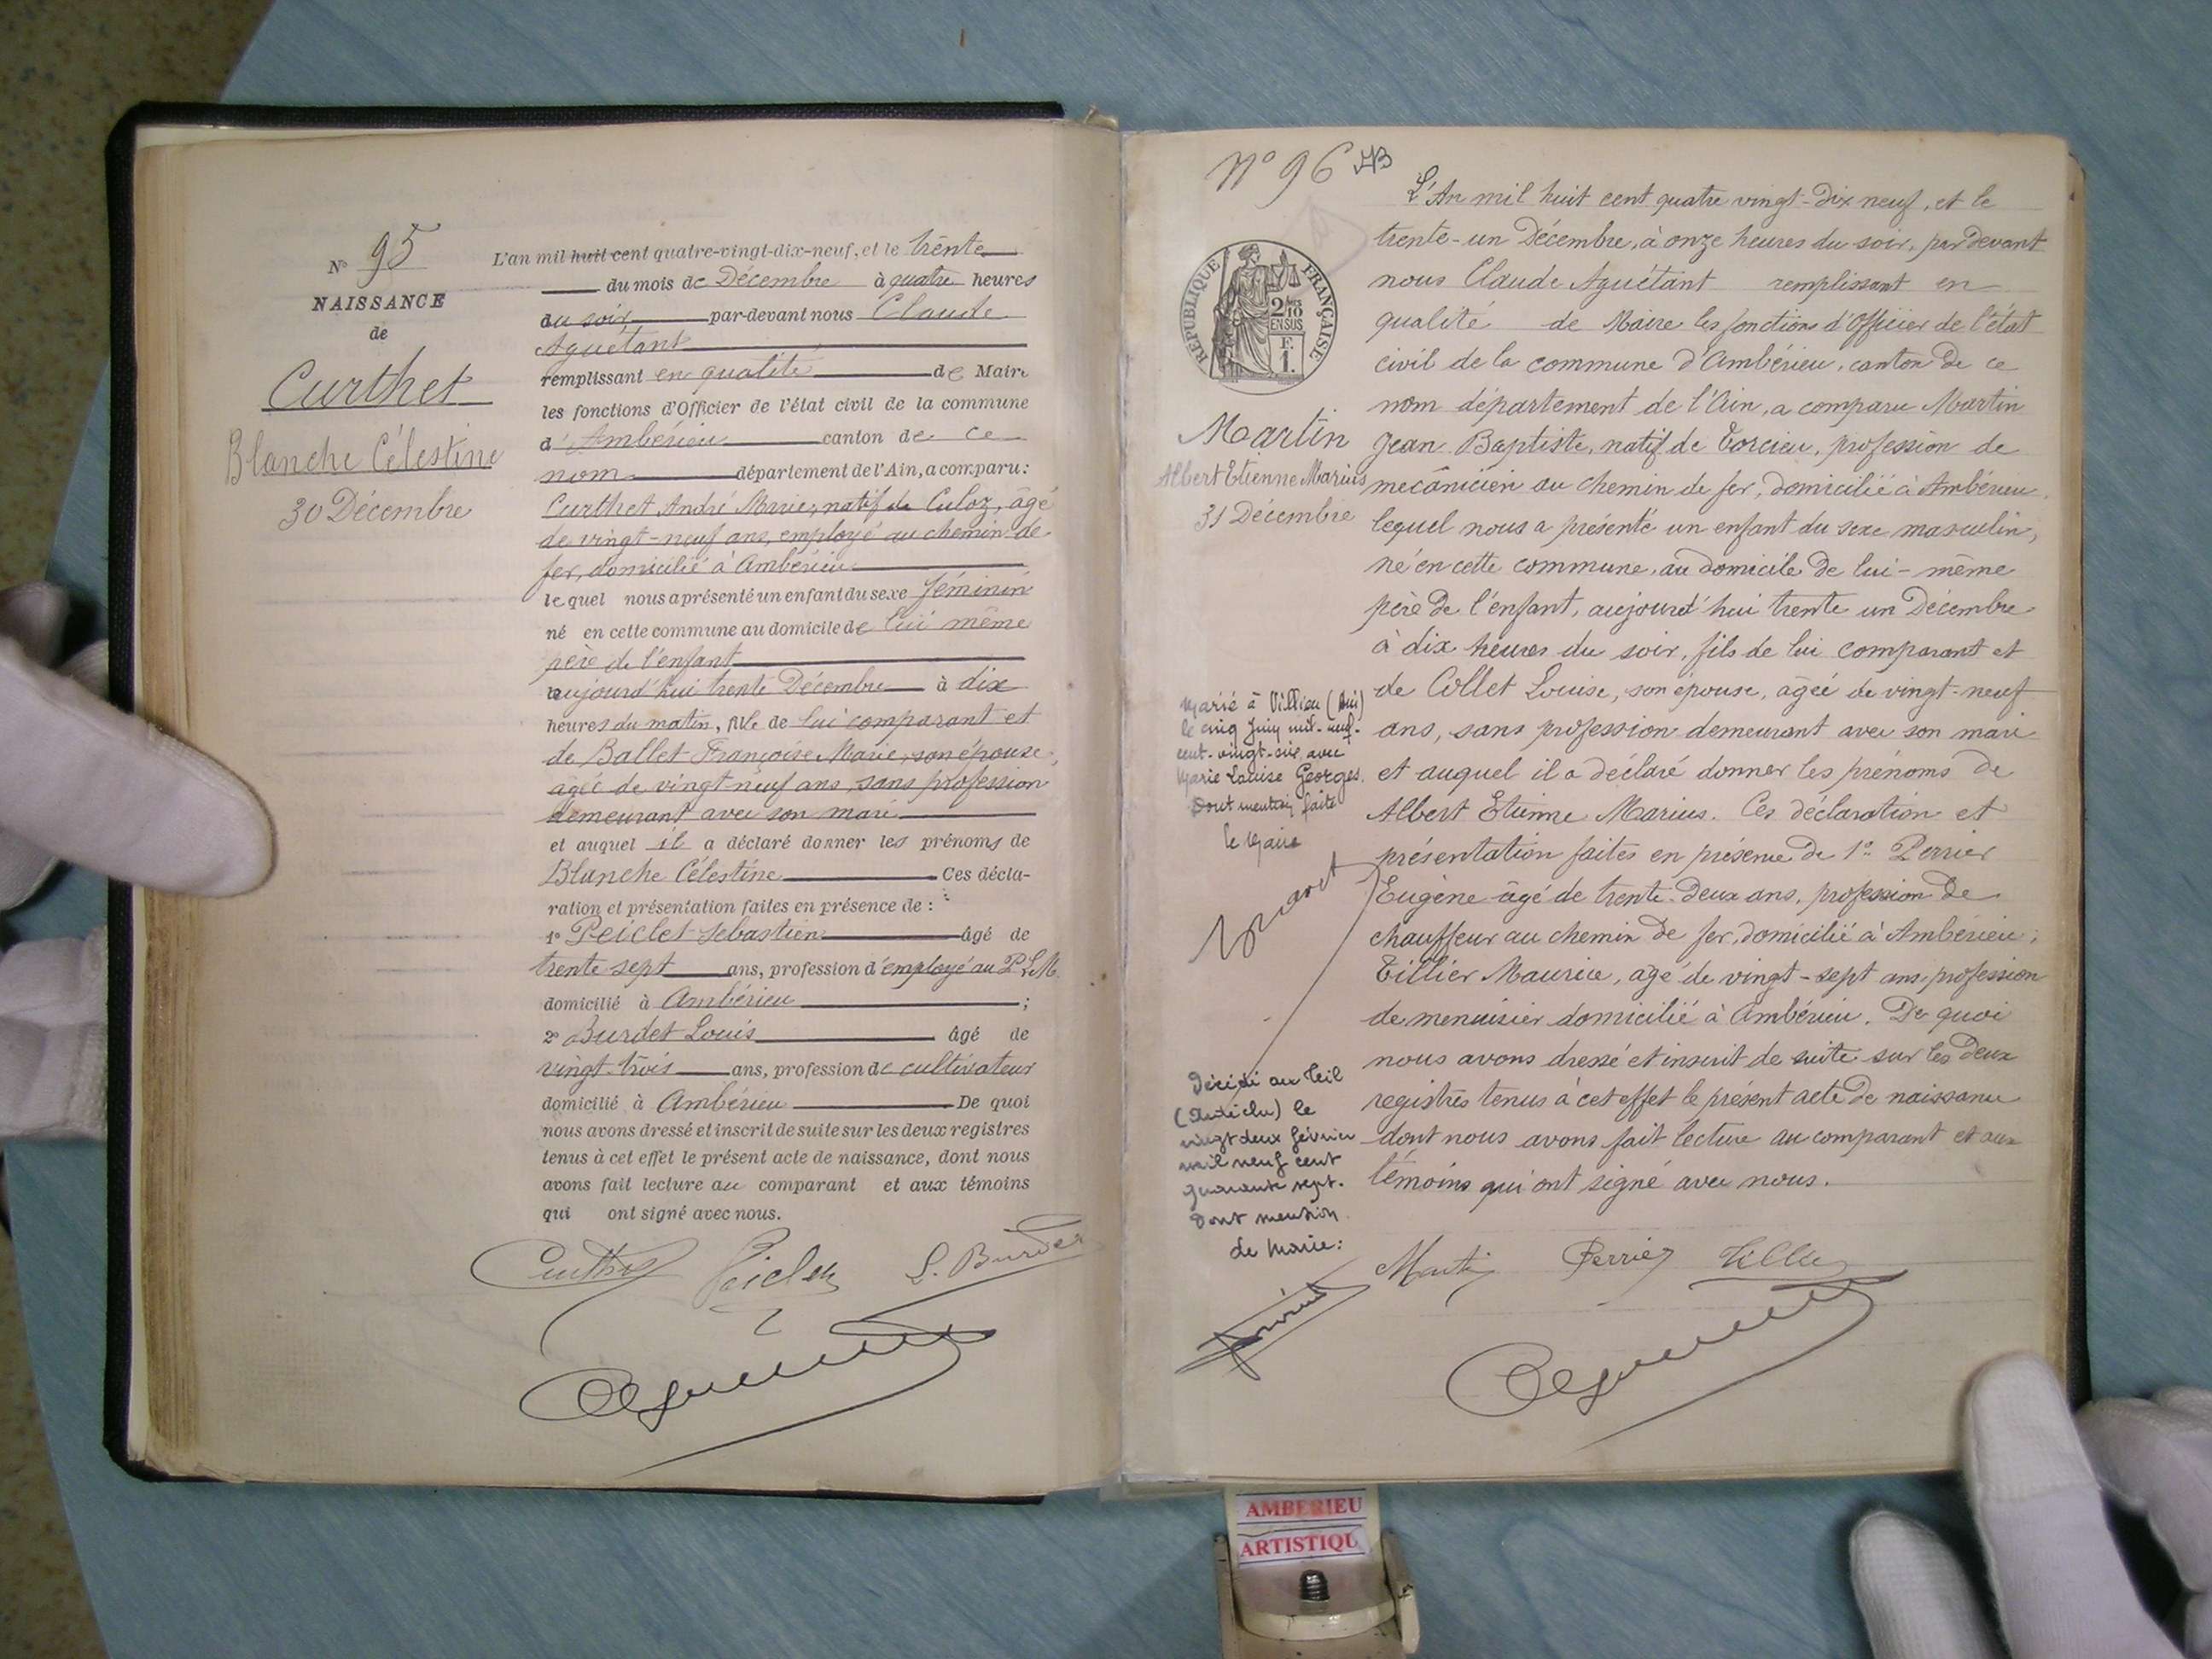 N° 95
NAISSANCE
de
Curthet
Blanche Célestine
30 Décembre
L'an mil huit cent quatre-vingt-dix-neuf, et le trente
du mois de Décembre à quatre heures
du soir par-devant nous Claude
Aguétant
remplissant en qualité de Maire
les fonctions d'Officier de l'état civil de la commune
d'Ambérieu canton de ce
nom département de l'Ain, a comparu:
Curthet André Marie, natif de Culoz, âgé
de vingt-neuf ans, employé au chemin de
fer, domicilié à Ambérieu
lequel nous a présenté un enfant du sexe féminin
né en cette commune au domicile de lui même
père de l'enfant
aujourd'hui trente Décembre à dix
heures du matin, fille de lui comparant et
de Ballet Françoise Marie, son épouse,
âgée de vingt-neuf ans, sans profession
demeurant avec son mari
et auquel il a déclaré donner les prénoms de
Blanche Célestine Ces décla-
ration et présentation faites en présence de :
1° Peiclet Sébastien âgé de
trente sept ans, profession d'employé au P.L.M.
domicilié à Ambérieu ;
2° Burdet Louis âgé de
vingt-trois ans, profession de cultivateur
domicilié à Ambérieu De quoi
nous avons dressé et inscrit de suite sur les deux registres
tenus à cet effet le présent acte de naissance, dont nous
avons fait lecture au comparant et aux témoins
qui ont signé avec nous.
Curthet Peiclet L. Burdet
N° 96
RÉPUBLIQUE FRANÇAISE
2/10
EN SUS
F.
1.
Martin
Albert Etienne Marius
31 Décembre
L'An mil huit cent quatre vingt-dix neuf, et le
trente-un Décembre, à onze heures du soir, par devant
nous Claude Aguétant remplissant en
qualité de Maire les fonctions d'Officier de l'état
civil de la commune d'Ambérieu, canton de ce
nom département de l'Ain, a comparu Martin
Jean Baptiste, natif de Torcieu, profession de
mécânicien au chemin de fer, domicilié à Ambérieu,
lequel nous a présenté un enfant du sexe masculin,
né en cette commune, au domicile de lui-même
père de l'enfant, aujourd'hui trente un Décembre
à dix heures du soir, fils de lui comparant et
de Collet Louise, son épouse, âgée de vingt-neuf
ans, sans profession demeurant avec son mari
et auquel il a déclaré donner les prénoms de
Albert Etienne Marius. Ces déclaration et
présentation faites en présence de 1° Perrier
Eugène âgé de trente-deux ans, profession de
chauffeur au chemin de fer, domicilié à Ambérieu,
Tillier Maurice, âgé de vingt-sept ans, profession
de menuisier domicilié à Ambérieu. De quoi
nous avons dressé et inscrit de suite sur les deux
registres tenus à cet effet le présent acte de naissance
dont nous avons fait lecture au comparant et aux
témoins qui ont signé avec nous.
Marié à Villieu (Ain)
le cinq Juin mil-neuf-
cent-vingt-six avec
Marie Louise Georges.
Dont mention faite
le Maire
Décédé au Teil
(Ardèche) le
vingt deux février
mil neuf cent
quarante sept.
Dont mention.
Le Maire:
Martin Perrier Tillier
AMBERIEU
ARTISTIQU